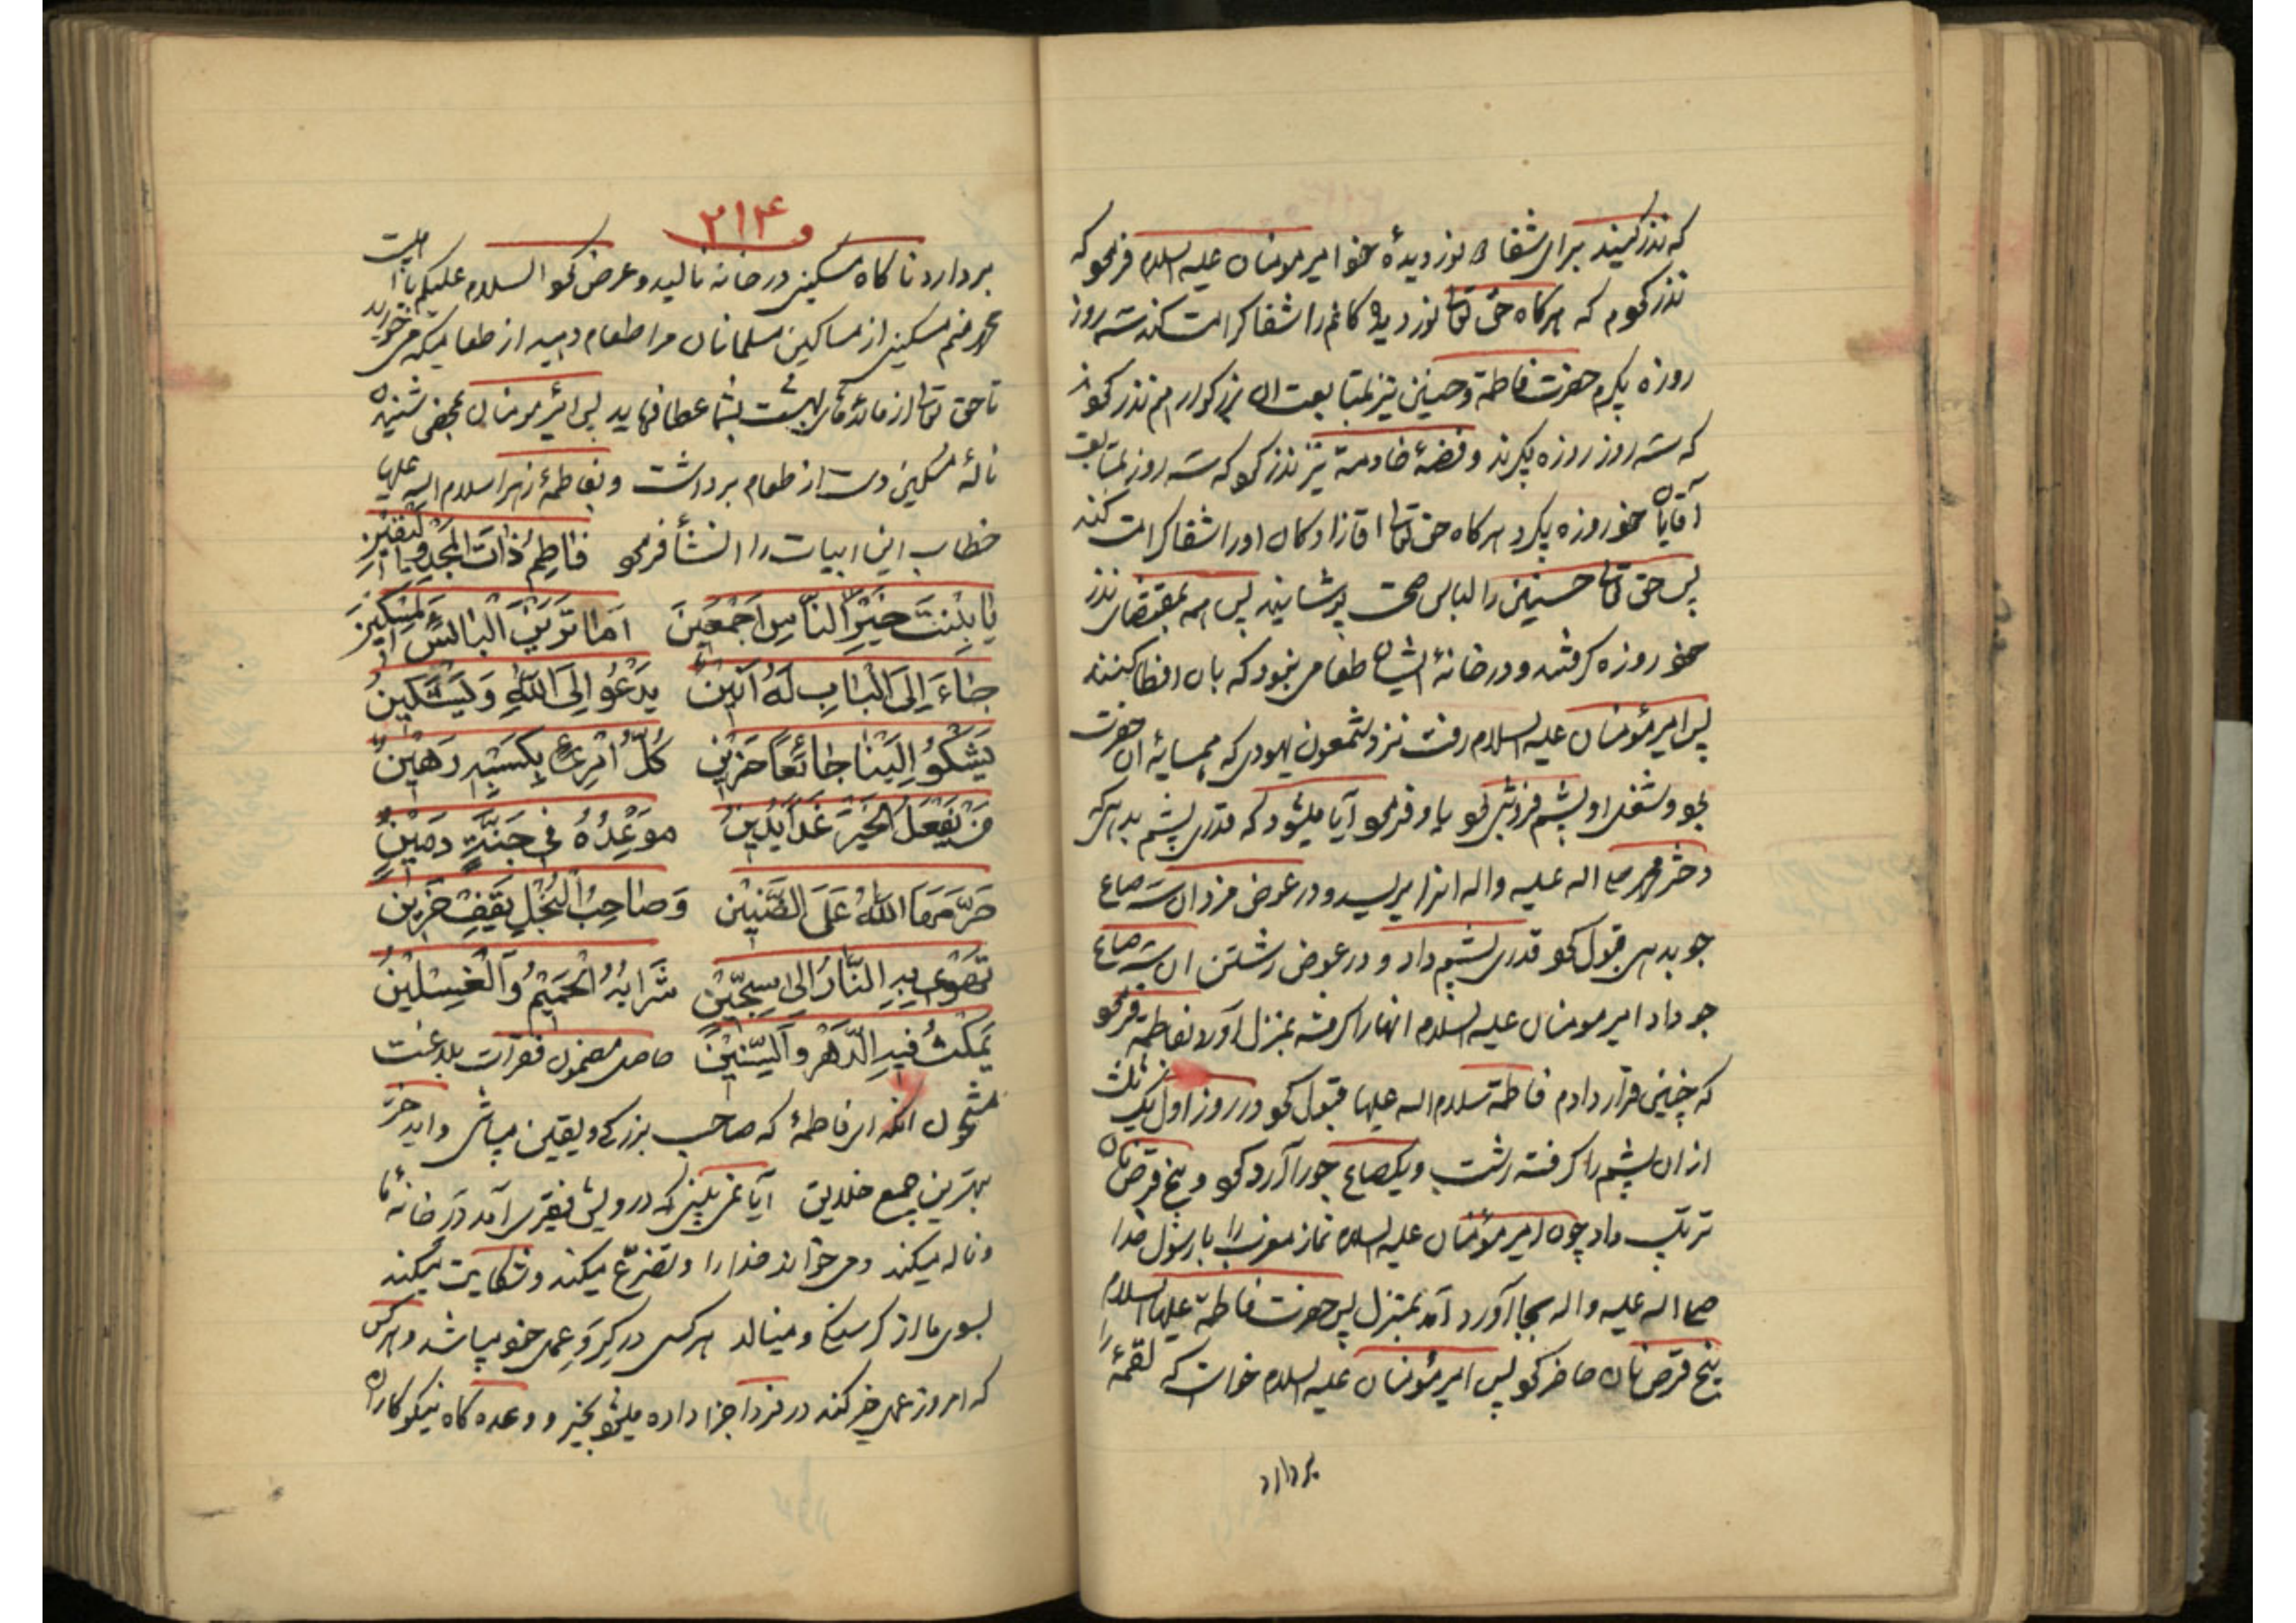 که نذر کنید برای شفای نور دیدهٔ خود امیر مومنان علیه السلام فرمود که
نذر کردم که هرکاه حق تعالی نور دیده کانم را شفا کرامت کند سه روز
روزه بگیرم حضرت فاطمه و حسنین نیز بمتابعت ان بزرکوار هم نذر کردند
که سه روز روزه بگیرند و فضهٔ خادمه نیز نذر کرد که سه روز بمتابعت
آقایان خود روزه بگیرد هرکاه حق تعالی اقازادکان اورا شفا کرامت کند
پس حق تعالی حسنین را لباس صحت پوشانید پس همه بمقتضای نذر
خود روزه کرفتند و در خانهٔ ایشان طعامی نبود که بان افطار کنند
پس امیر مؤمنان علیه السلام رفت نزد شمعون یهودی که همسایهٔ ان حضرت
بود و شغل او پشم فروشی بود باو فرمود آیا میشود که قدری پشم بدهی که
دختر محمد صلی اله علیه واله انرا بریسد و در عوض مزد ان سه صاع
جو بدهی قبول کرد قدری پشم داد و در عوض رشتن ان سه صاع
جو داد امیر مومنان علیه السلام انها را کرفته بمنزل آورد بفاطمه فرمود
که چنین قرار دادم فاطمه سلام اله علیها قبول کرد در روز اول یک ثلث
از ان پشم را کرفته رشت و یکصاع جو را آرد کرد و پنج قرص نان
ترتیب داد چون امیر مؤمنان علیه السلام نماز مغرب را با رسول خدا
صلی اله علیه واله بجا آورد آمد بمنزل پس حضرت فاطمه علیها السلام
پنج قرص نان را حاضر کرد پس امیر مؤمنان علیه السلام خواست که لقمهٔ
بردارد
۲۱۴
بردارد ناکاه مسکینی در خانه نالید و عرض کرد السلام علیکم یا اهلبیت
محمد منم مسکینی از مساکین مسلمانان مرا طعام دهید از طعامیکه می خورید
تا حق تعالی از مائدهای بهشت بشما عطا فرماید پس امیر مومنان بمحض شنیدن
نالهٔ مسکین دست از طعام برداشت و بفاطمهٔ زهرا سلام اله علیها
خطاب این ابیات را انشأ فرمود فاطِمُ ذاتَ المَجْدِ وَالیَقین
یا بِنْتَ خَیْرِ النّاسِ اَجْمَعین اَما تَرَیْنَ الْبائِسَ الْمِسْکین
جاءَ اِلَی الْبابِ لَهُ اَنین یَدْعُو اِلَی اللهِ وَیَسْتَکین
یَشْکُو اِلَیْنا جائِعاً حَزین کُلُّ امْرِئٍ بِکَسْبِهِ رَهین
مَنْ یَفْعَلُ الْخَیْرَ غَداً یَدین مَوْعِدُهُ فی جَنَّةٍ دَمین
حَرَّمَهَا اللهُ عَلَی الضَّنین وَصاحِبُ الْبُخْلِ یَقِفُ حَزین
تَهْوی بِهِ النّارُ اِلی سِجّین شَرابُهُ الْحَمیمُ وَالْغِسْلین
یَمْکُثُ فیهِ الدَّهْرَ وَالسِّنین حاصل مضمون فقرات بلاغت
مشحون انکه ای فاطمهٔ که صاحب بزرکی و یقین میباشی و ای دختر
بهترین جمیع خلایق آیا نمی بینی که درویش فقیری آمد در خانهٔ ما
و ناله میکند و می خواند خدا را و تضرّع میکند و شکایت میکند
بسوی ما از کرسنکی و مینالد هر کسی در کرو عمل خود میباشد و هر کس
که امروز عمل خیر کند در فردا جزا داده میشود بخیر و وعده کاه نیکوکاران